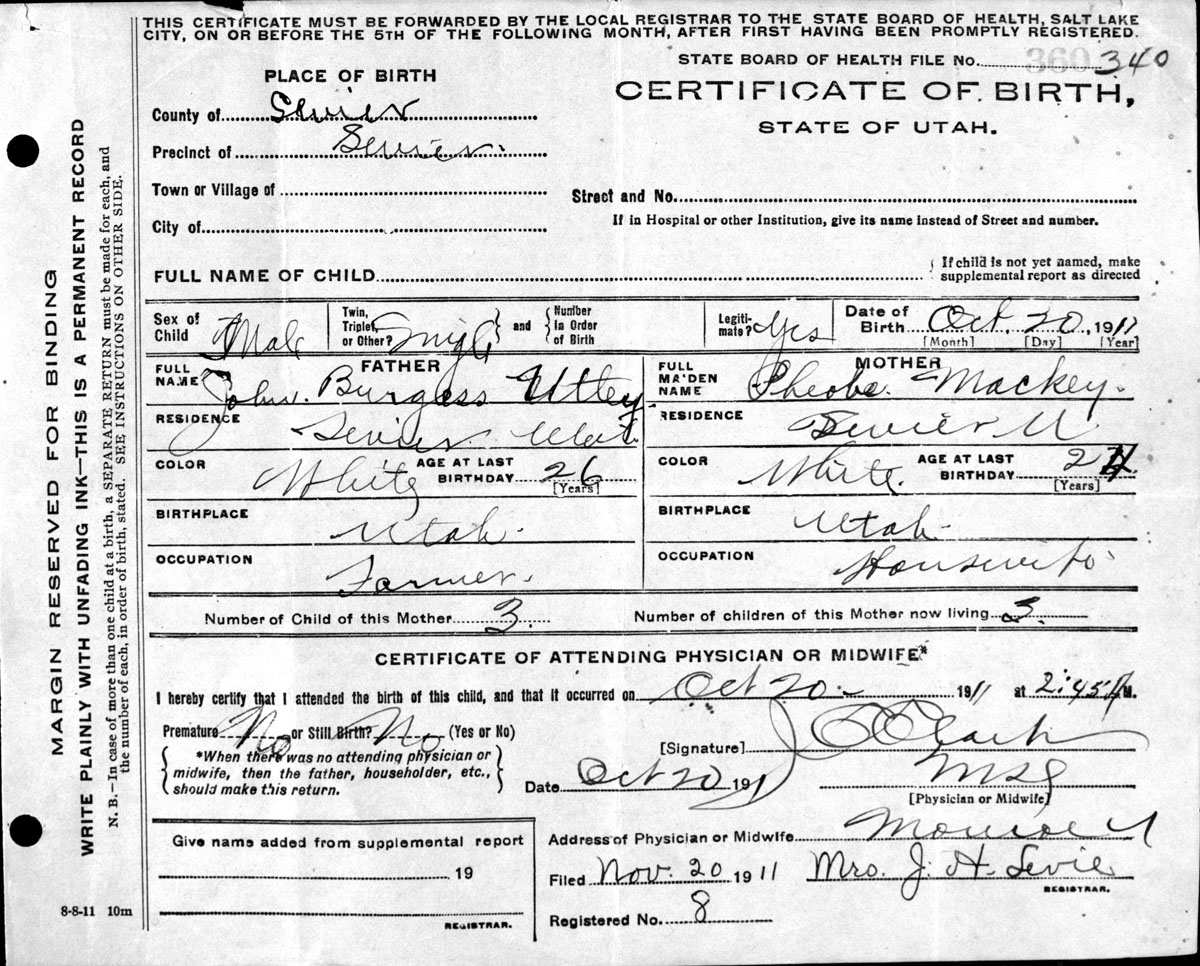 THIS CERTIFICATE MUST BE FORWARDED BY THE LOCAL REGISTRAR TO THE STATE BOARD OF HEALTH, SALT LAKE
CITY, ON OR BEFORE THE 5TH OF THE FOLLOWING MONTH, AFTER FIRST HAVING BEEN PROMPTLY REGISTERED.
STATE BOARD OF HEALTH FILE No. 340
360
PLACE OF BIRTH
CERTIFICATE OF BIRTH,
STATE OF UTAH.
County of Sevier
Precinct of Sevier.
Town or Village of
Street and No.
City of
If in Hospital or other Institution, give its name instead of Street and number.
FULL NAME OF CHILD
If child is not yet named, make
supplemental report as directed
Sex of Child Male
Twin, Triplet, or Other? Single
and
Number In Order of Birth
Legiti-mate? Yes
Date of Birth Oct. 20, 1911
[Month] [Day] [Year]
FATHER
MOTHER
FULL NAME John Burgess Utley
FULL MAIDEN NAME Pheobe Mackey.
RESIDENCE Sevier Utah
RESIDENCE Sevier U
COLOR White
AGE AT LAST BIRTHDAY 26
[Years]
COLOR White.
AGE AT LAST BIRTHDAY 24
[Years]
BIRTHPLACE Utah.
BIRTHPLACE Utah.
OCCUPATION Farmer.
OCCUPATION Housewife
Number of Child of this Mother 3.
Number of children of this Mother now living 3.
CERTIFICATE OF ATTENDING PHYSICIAN OR MIDWIFE*
I hereby certify that I attended the birth of this child, and that it occurred on Oct 20 - 1911 at 2:45 M.
Premature No or Still Birth? No (Yes or No)
*When there was no attending physician or
midwife, then the father, householder, etc.,
should make this return.
[Signature] J Clark
Date Oct 20 1911
[Physician or Midwife]
Address of Physician or Midwife Monroe U
Give name added from supplemental report
19
REGISTRAR.
Filed Nov. 20 1911 Mrs. J. H. Levie
REGISTRAR.
Registered No. 8
8-8-11 10m
MARGIN RESERVED FOR BINDING
WRITE PLAINLY WITH UNFADING INK—THIS IS A PERMANENT RECORD
N. B.—In case of more than one child at a birth, a SEPARATE RETURN must be made for each, and
the number of each, in order of birth, stated. SEE INSTRUCTIONS ON OTHER SIDE.